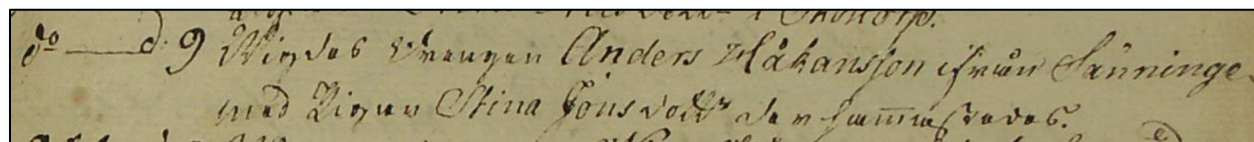 i Skottorp.
do — d. 9 Wigdes Drengen Anders Håkansson ifrån Sänninge
med Pigan Stina Jönsdottr dersammastedes.